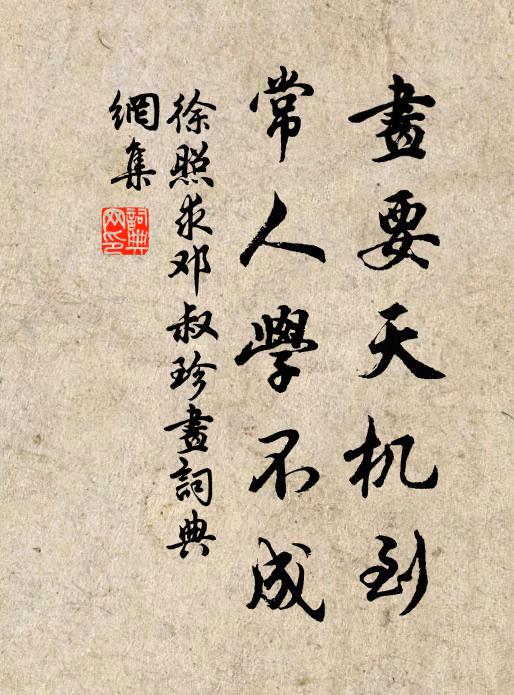 畫要天机到
常人學不成
徐照求邓叔珍畫詞典
網集
詞典
网印